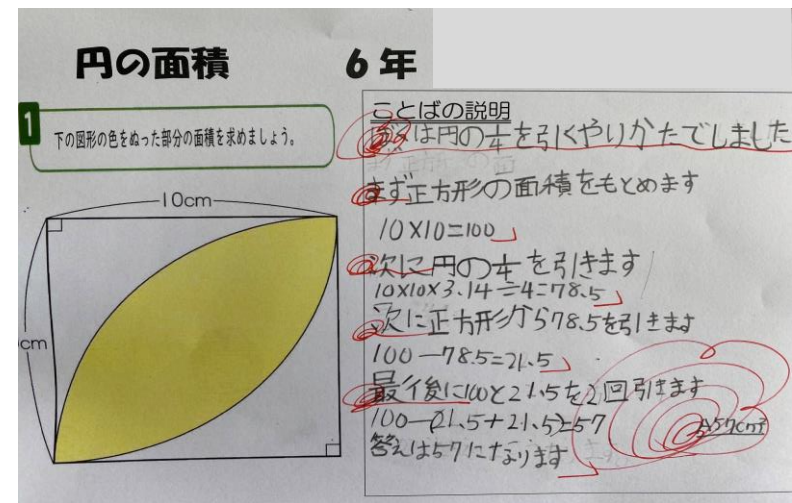 円の面積 6年
1 下の図形の色をぬった部分の面積を求めましょう。
10cm
cm
ことばの説明
ぼくは円の1/4を引くやりかたでしました
まず正方形の面積をもとめます
10×10=100
次に円の1/4を引きます
10×10×3.14÷4=78.5
次に正方形から78.5を引きます
100-78.5=21.5
最後に100と21.5を2回引きます
100-(21.5+21.5)=57
A57cm²
答えは57になります